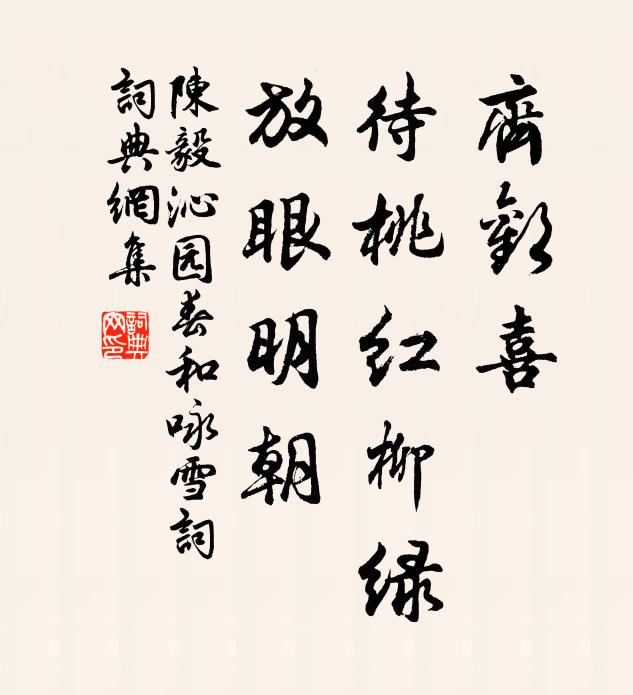 齊歡喜
待桃红柳绿
放眼明朝
陳毅沁园春和咏雪詞
詞典網集
詞典网印